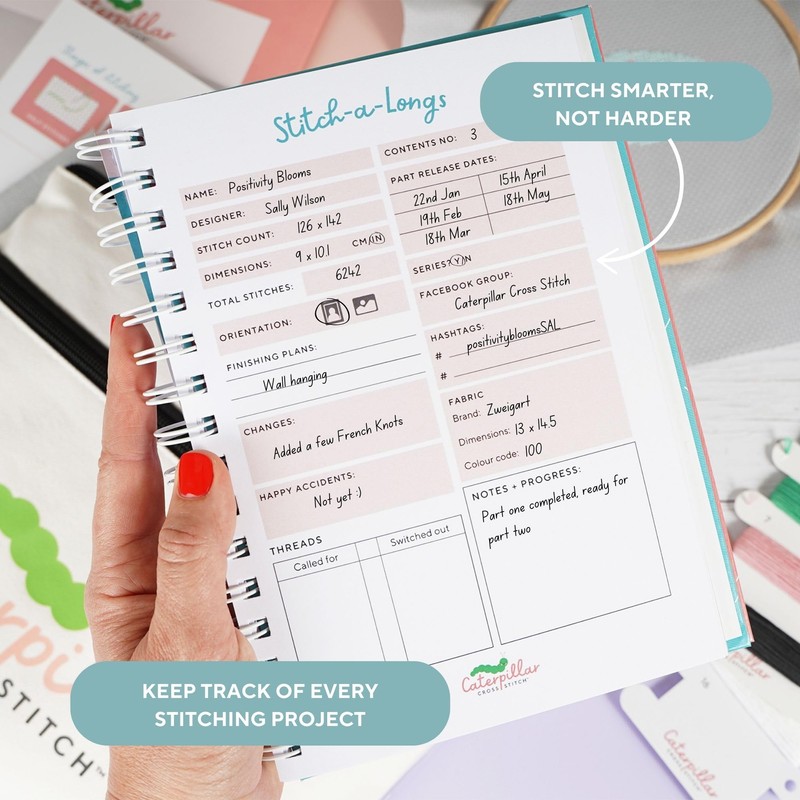 Caterpillar
STITCH SMARTER,
NOT HARDER
Stitch-a-Longs
NAME: Positivity Blooms
DESIGNER: Sally Wilson
STITCH COUNT: 126 x 142
DIMENSIONS: 9 x 10.1 CM/IN
TOTAL STITCHES: 6242
ORIENTATION:
FINISHING PLANS:
Wall hanging
CHANGES:
Added a few French Knots
HAPPY ACCIDENTS:
Not yet :)
THREADS
Called for Switched out
CONTENTS NO: 3
PART RELEASE DATES:
22nd Jan 15th April
19th Feb 18th May
18th Mar
SERIES? Y/N
FACEBOOK GROUP:
Caterpillar Cross Stitch
HASHTAGS:
# positivitybloomsSAL
#
FABRIC
Brand: Zweigart
Dimensions: 13 x 14.5
Colour code: 100
NOTES + PROGRESS:
Part one completed, ready for
part two
Caterpillar
CROSS STITCH™
KEEP TRACK OF EVERY
STITCHING PROJECT
STITCH™
Caterpillar
CROSS STITCH